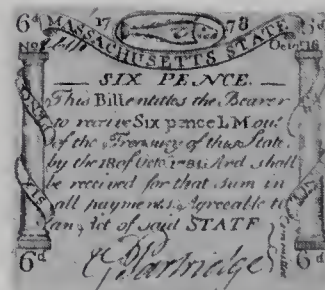 6d 17 78 6d
MASSACHUSETTS STATE
No Octor 16
SIX PENCE
This Bill entitles the Bearer
to receive Six pence LM out
of the Treasury of this State
by the 18 of Octr. 1781. And shall
be received for that sum in
all payments. Agreeable to
an Act of said STATE
SIX
PENCE
6d 6d